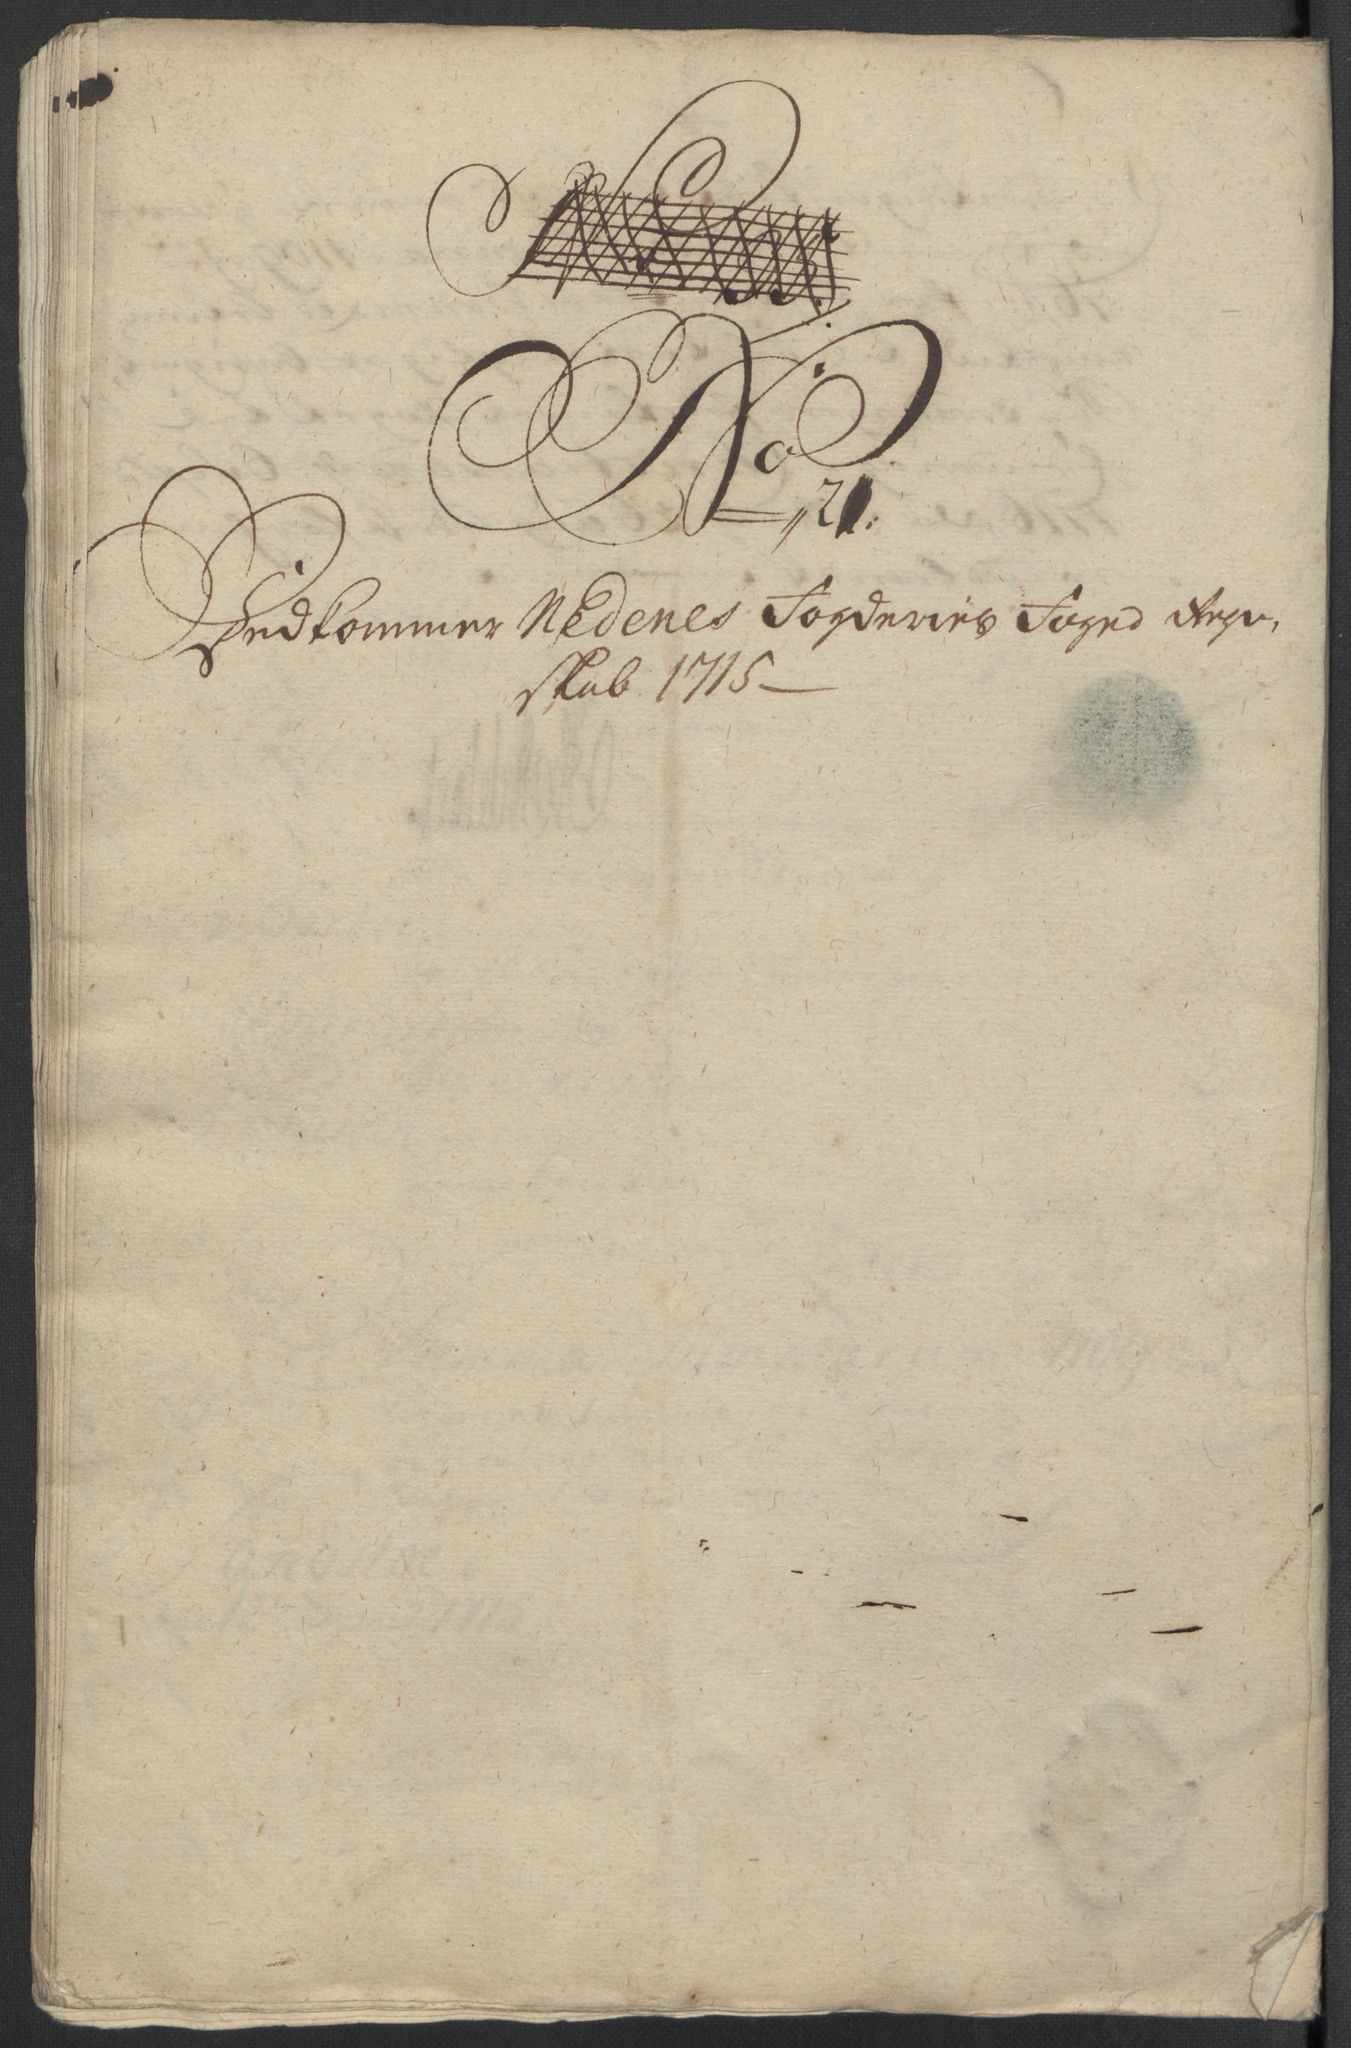 No
21.
Vedkommer Nedenes Fogderies Foged Regn-
skab 1715